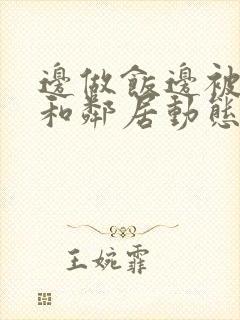 邊做飯邊被
和鄰居動態
王婉霏